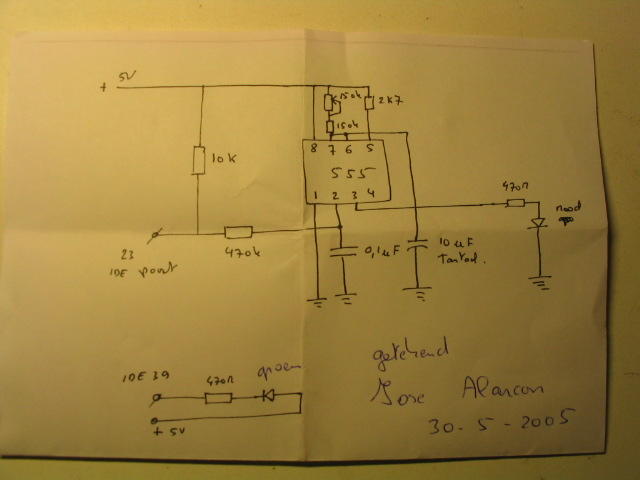 + 5V
150k
150k
2k7
10k
8 7 6 5
555
1 2 3 4
470Ω
rood
23
IDE poort
470k
0,1uF
10 uF
Tantaal.
getekend
Jose Alarcon
30-5-2005
IDE 39
470Ω
groen
+ 5V